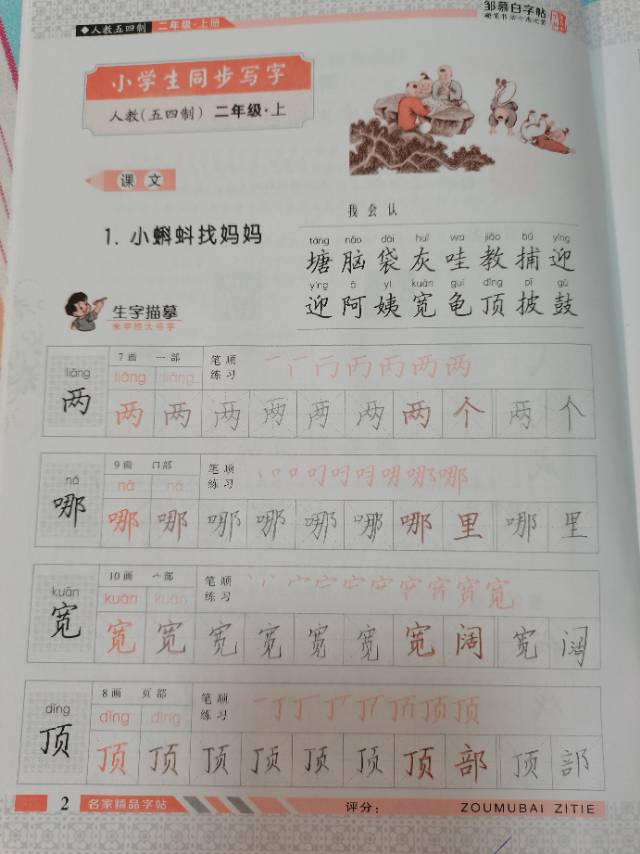 ◆人教五四制 二年级·上册
邹慕白字帖
小学生同步写字
人教(五四制) 二年级·上
课文
我会认
1. 小蝌蚪找妈妈
táng nǎo dài huī wa jiāo bǔ yíng
塘 脑 袋 灰 哇 教 捕 迎
yíng ā yí kuān guī dǐng pī gǔ
迎 阿 姨 宽 龟 顶 披 鼓
生字描摹
米字格大号字
liǎng 两
7画 一部 笔顺练习
liǎng liǎng
两 两 两 两 两 两 两 个 两 个
nǎ 哪
9画 口部 笔顺练习
nǎ nǎ
哪 哪 哪 哪 哪 哪 哪 里 哪 里
kuān 宽
10画 宀部 笔顺练习
kuān kuān
宽 宽 宽 宽 宽 宽 宽 阔 宽 阔
dǐng 顶
8画 页部 笔顺练习
dǐng dǐng
顶 顶 顶 顶 顶 顶 顶 部 顶 部
2 名家精品字帖 评分: ZOUMUBAI ZITIE